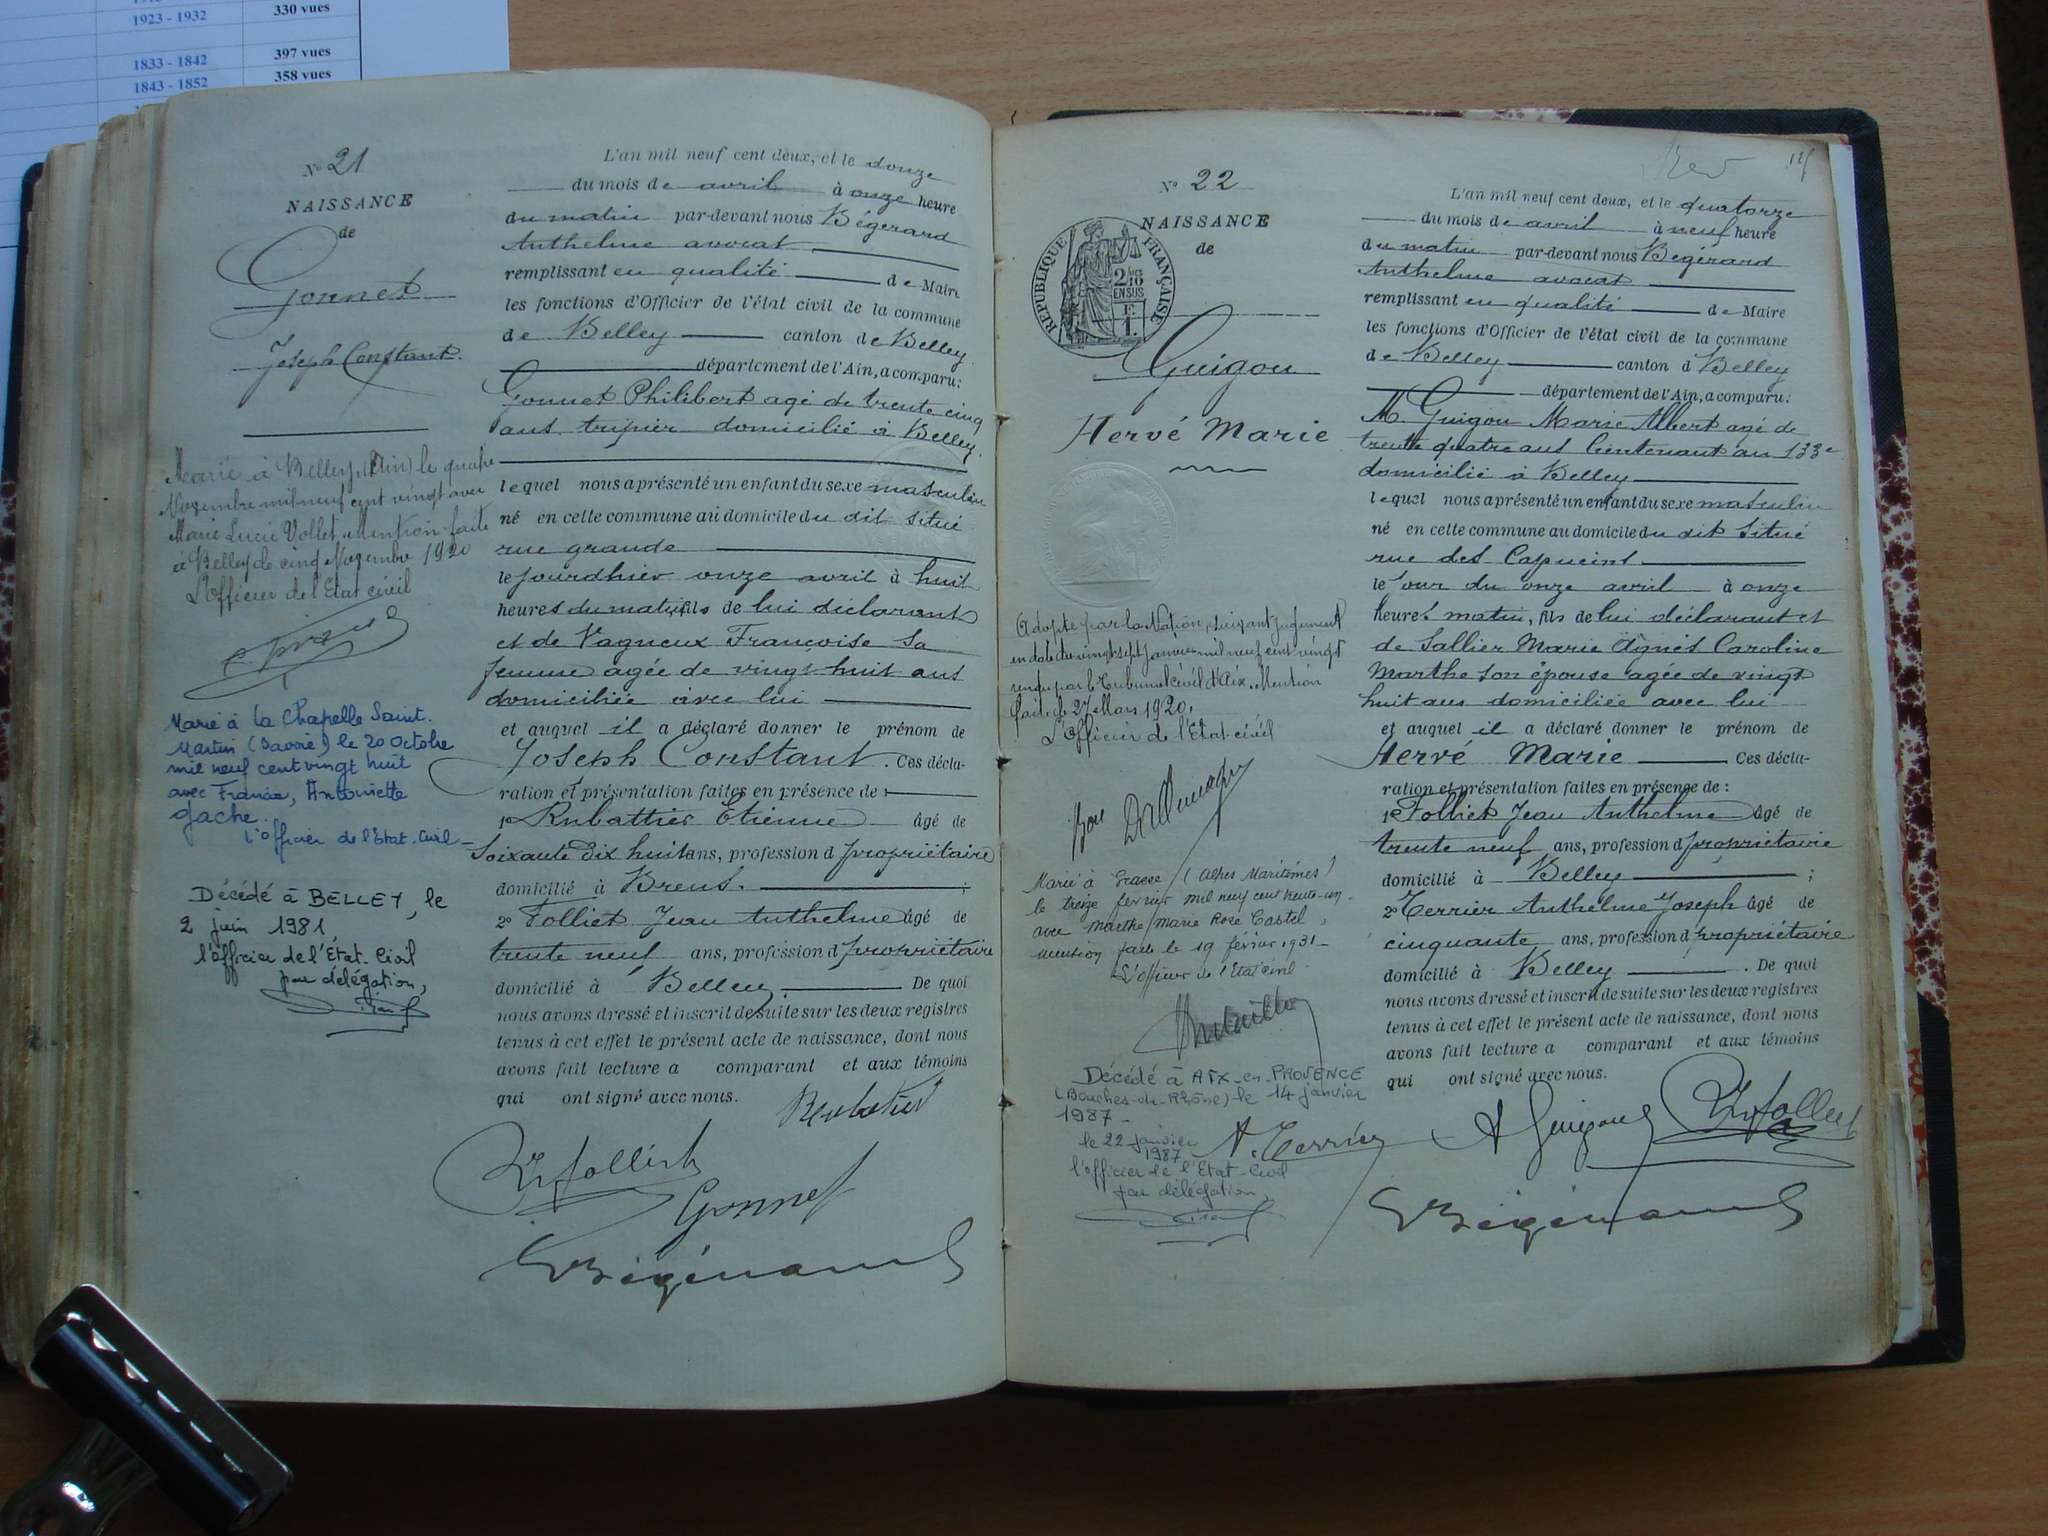 1923 - 1932 330 vues
1833 - 1842 397 vues
1843 - 1852 358 vues
N° 21
NAISSANCE
de
Gonnet
Joseph Constant.
Marié à Belley (Ain) le quatre
Novembre mil neuf cent vingt avec
Marie Lucie Vollet. Mention faite
à Belley le cinq Novembre 1920
L'Officier de l'Etat civil
Marié à La Chapelle Saint.
Martin (Savoie) le 20 Octobre
mil neuf cent vingt huit
avec Francia, Antoinette
Gache.
L'officier de l'Etat-Civil
Décédé à BELLEY, le
2 juin 1981,
l'officier de l'État-Civil
par délégation,
L'an mil neuf cent deux, et le douze
du mois de avril à onze heure
du matin par-devant nous Bégerard
Anthelme avocat
remplissant en qualité de Maire
les fonctions d'Officier de l'état civil de la commune
de Belley canton de Belley
département de l'Ain, a comparu:
Gonnet Philibert agé de trente cinq
ans tripier domicilié à Belley.
lequel nous a présenté un enfant du sexe masculin
né en cette commune au domicile du dit situé
rue grande
le jourdhier onze avril à huit
heures du matin, fils de lui déclarant
et de Vagneux Françoise sa
femme agée de vingt-huit ans
domiciliée avec lui
et auquel il a déclaré donner le prénom de
Joseph Constant. Ces décla-
ration et présentation faites en présence de :
1° Rubattier Etienne âgé de
soixante dix huit ans, profession d propriétaire
domicilié à Brens. ;
2° Folliet Jean Anthelme âgé de
trente neuf ans, profession d propriétaire
domicilié à Belley. De quoi
nous avons dressé et inscrit de suite sur les deux registres
tenus à cet effet le présent acte de naissance, dont nous
avons fait lecture a comparant et aux témoins
qui ont signé avec nous.
Rubatier
Folliet
Gonnet
Bégérard
N° 22
NAISSANCE
de
RÉPUBLIQUE FRANÇAISE
2 10
EN SUS
1 F.
Guigou
Hervé Marie
Adopté par la Nation, suivant jugement
en date du vingt sept Janvier mil neuf cent vingt
rendu par le Tribunal civil d'Aix. Mention
faite le 27 Mars 1920.
L'Officier de l'Etat-civil
Marié à Grasse (Alpes Maritimes)
le treize février mil neuf cent trente-un
avec Marthe Marie Rose Castel,
mention faite le 19 février 1931-
L'officier de l'Etat civil
Décédé à AIX-en-PROVENCE
(Bouches-du-Rhône) le 14 janvier
1987-
le 22 janvier
1987
l'officier de l'Etat-Civil
par délégation,
L'an mil neuf cent deux, et le quatorze
du mois de avril à neuf heure
du matin par-devant nous Bégérard
Anthelme avocat
remplissant en qualité de Maire
les fonctions d'Officier de l'état civil de la commune
de Belley canton d Belley
département de l'Ain, a comparu:
M. Guigou Marie Albert agé de
trente quatre ans lieutenant au 133e
domicilié à Belley
lequel nous a présenté un enfant du sexe masculin
né en cette commune au domicile du dit situé
rue des Capucins
le jour du onze avril à onze
heures matin, fils de lui déclarant et
de Sallier Marie Agnès Caroline
Marthe son épouse agée de vingt
huit ans domiciliée avec lui
et auquel il a déclaré donner le prénom de
Hervé Marie Ces décla-
ration et présentation faites en présence de :
1° Folliet Jean Anthelme âgé de
trente neuf ans, profession d propriétaire
domicilié à Belley ;
2° Terrier Anthelme Joseph âgé de
cinquante ans, profession d propriétaire
domicilié à Belley. De quoi
nous avons dressé et inscrit de suite sur les deux registres
tenus à cet effet le présent acte de naissance, dont nous
avons fait lecture a comparant et aux témoins
qui ont signé avec nous.
A. Terrier A Guigou Folliet
Bégérard